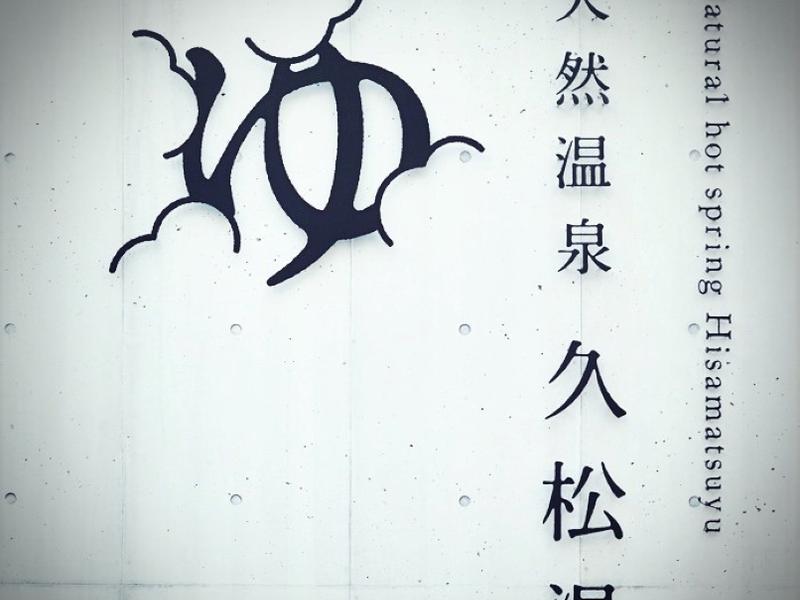 ゆ
天然温泉 久松湯
atural hot spring Hisamatsuyu